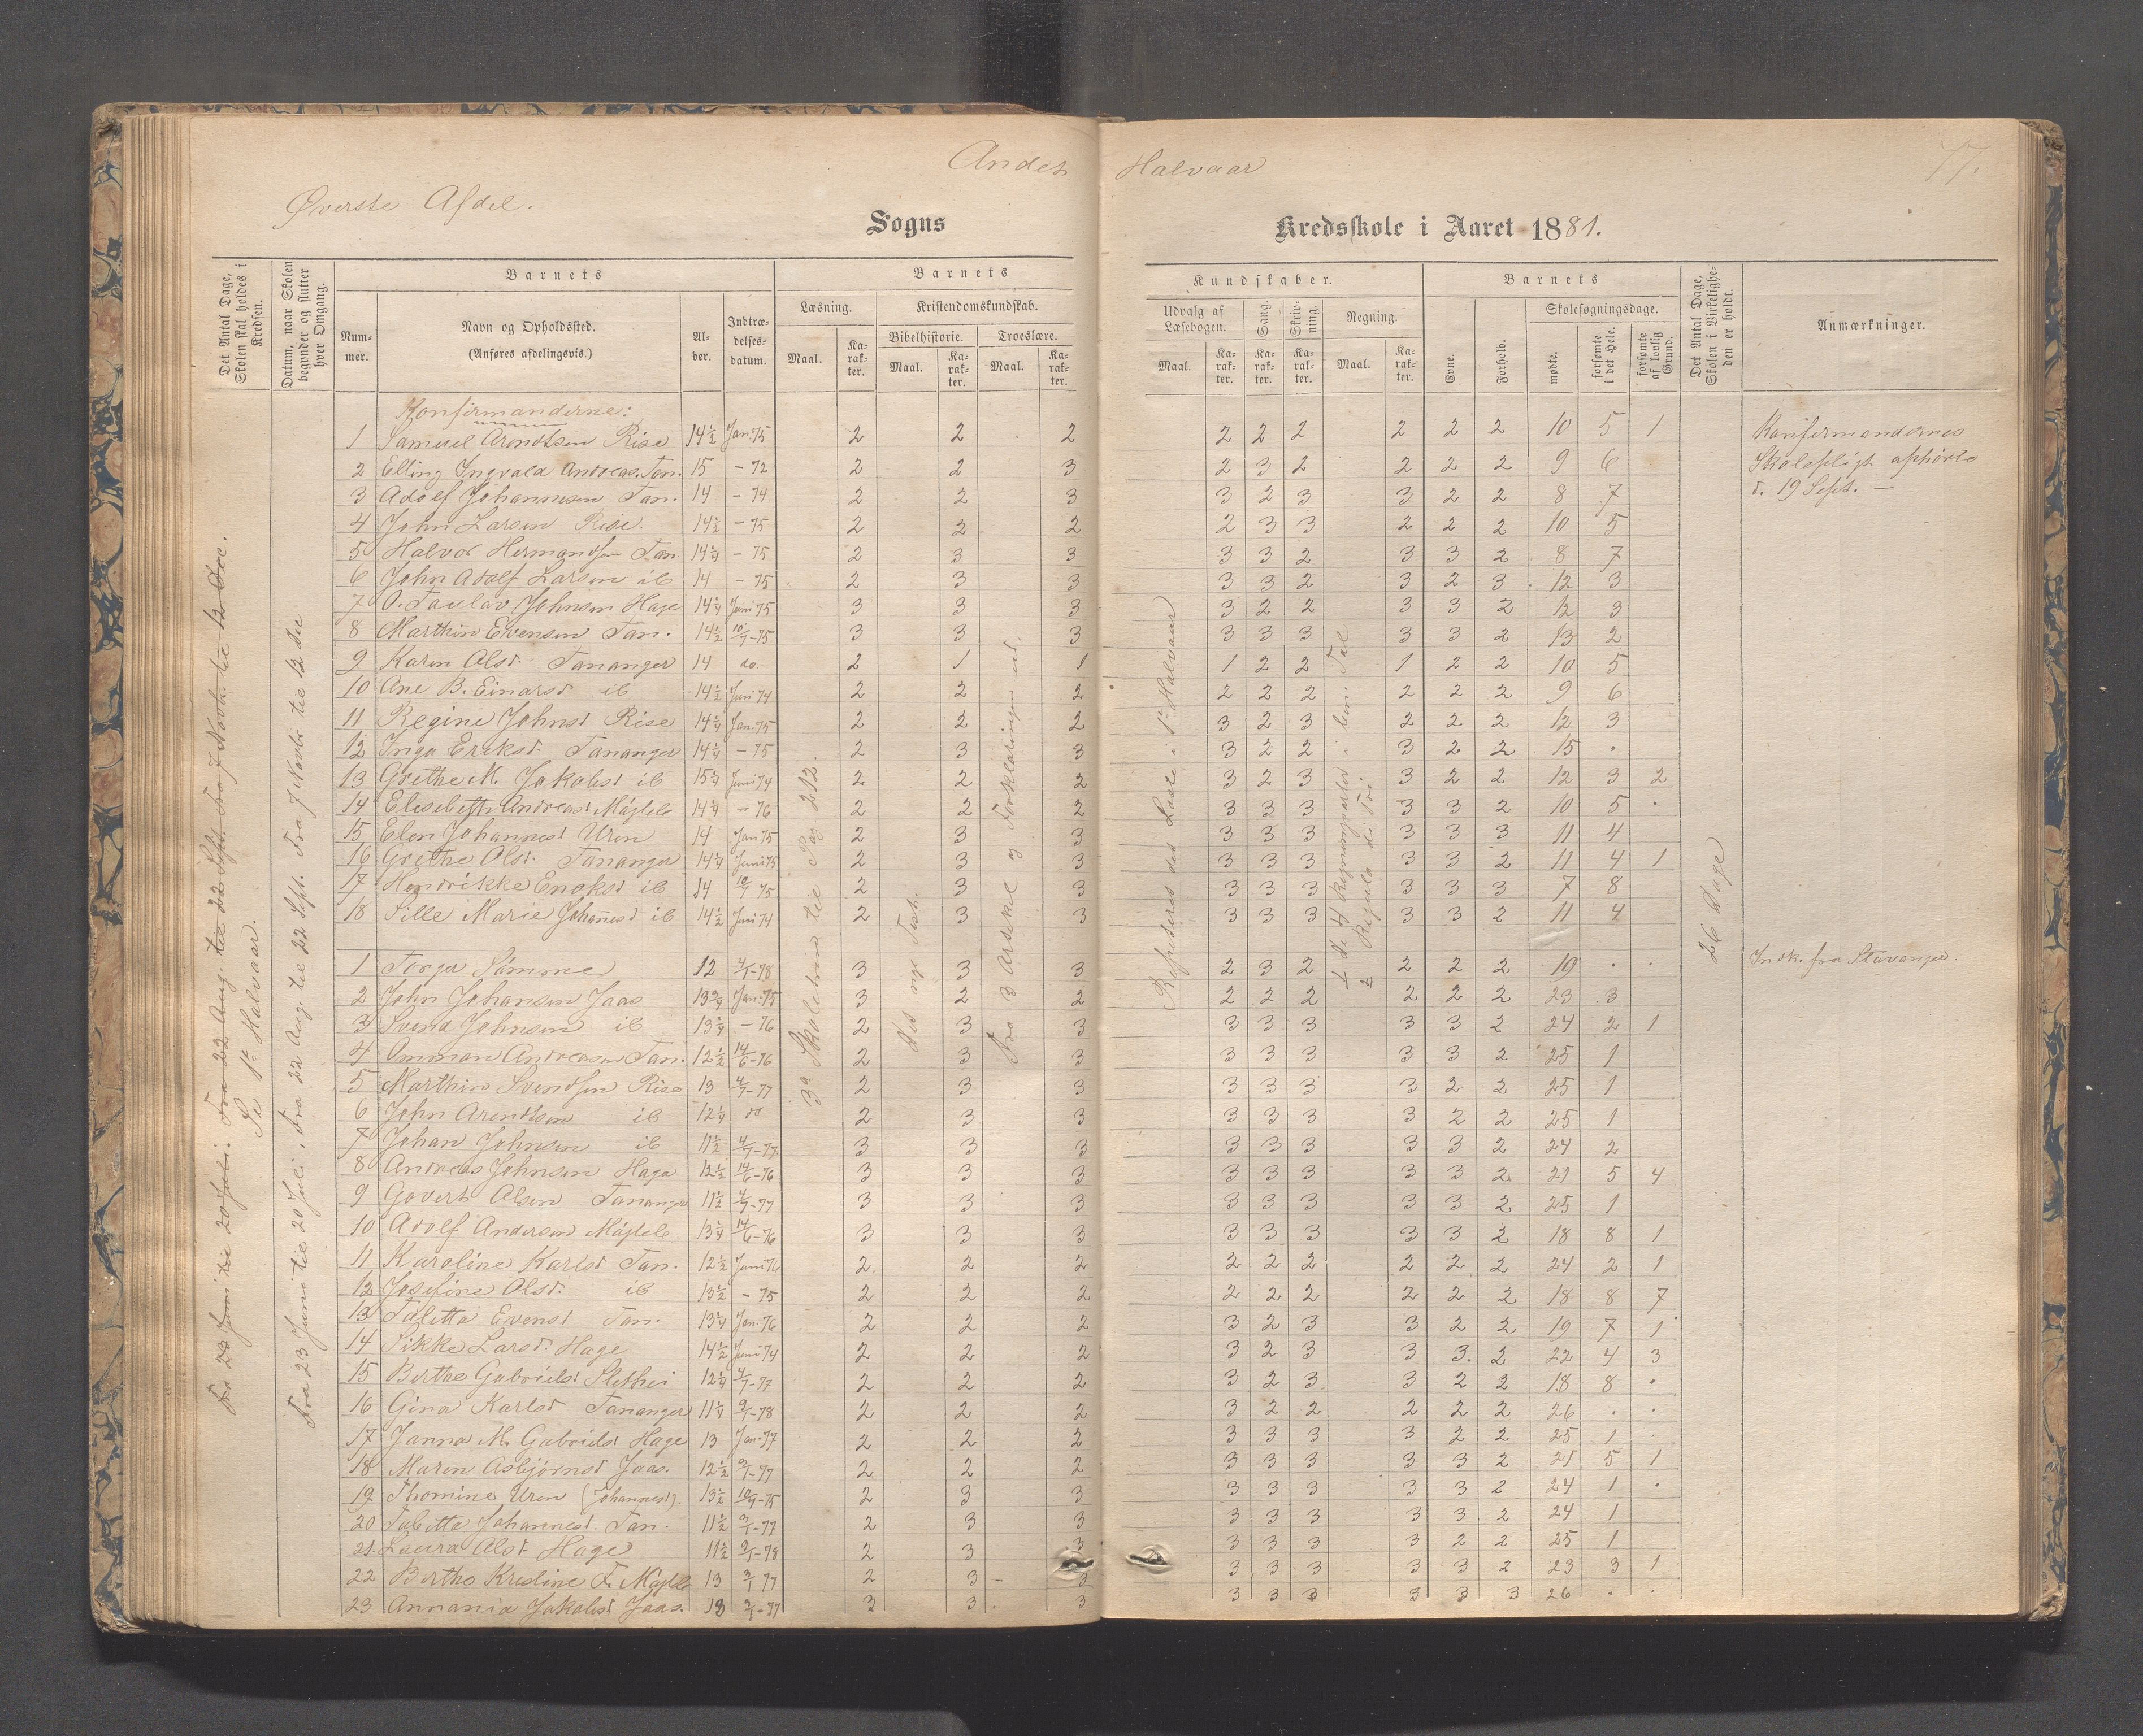 Andet Halvaar
77.
Øverste Afdel.
Sogns Kredsskole i Aaret 1881.
Det Antal Dage, Skolen skal holdes i Kredsen.
Datum, naar Skolen begynder og slutter hver Omgang.
Barnets
Num-mer.
Navn og Opholdssted.
(Anføres afdelingsvis.)
Al-der.
Indtræ-delses-datum.
Barnets
Læsning.
Maal.
Ka-rak-ter.
Kristendomskundskab.
Bibelhistorie.
Maal.
Ka-rak-ter.
Troeslære.
Maal.
Ka-rak-ter.
Kundskaber.
Udvalg af Læsebogen.
Maal.
Ka-rak-ter.
Sang.
Ka-rak-ter.
Skriv-ning.
Ka-rak-ter.
Regning.
Maal.
Ka-rak-ter.
Barnets
Evne.
Forhold.
Skolesøgningsdage.
mødte.
forsømte i det Hele.
forsømte af lovlig Grund.
Det Antal Dage, Skolen i Virkelighe-den er holdt.
Anmærkninger.
Fra 23 Juni til 20 Juli. Fra 22 Aug. til 22 Sept. Fra 7 Novb. til 12 Dec.
Se 1ste Halvaar.
Fra 23 Juni til 20 Juli, fra 22 Aug. til 22 Sept. Fra 7 Novb. til 12 Dec
Skoletrin til Pag. 212.
Det nye Test.
Fra 3 Artikel og Forklaringen ud.
Repeteres det Læste i 1ste Halvaar
de 4 Regningsarter i ben. Tal
Regula de Tri
26 Dage
Konfirmanderne:
1 Samuel Arendtsen Rise 14½ Jan. 75 2 2 2 2 2 2 2 2 2 10 5 1 Konfirmandernes
2 Elling Ingvald Andreas. Tan. 15 - 72 2 2 3 2 3 2 2 2 2 9 6 Skolepligt ophørte
3 Adolf Johannesen Tan. 14 - 74 2 2 3 3 2 3 3 2 2 8 7 d. 19 Sept. -
4 John Larsen Rise 14½ - 75 2 2 2 2 3 3 2 2 2 10 5
5 Halvor Hermandsen Tan 14¼ - 75 2 3 3 3 3 2 3 3 2 8 7
6 John Adolf Larsen ib 14 - 75 2 3 3 3 3 2 3 2 3 12 3
7 O. Taulav Johnsen Hage 14¼ Juni 75 3 3 3 3 2 2 3 3 2 12 3
8 Marthin Evensen Tan. 14½ 10/7-75 3 3 3 3 3 3 3 3 2 13 2
9 Karen Olsd. Tananger 14 do. 2 1 1 1 2 2 1 2 2 10 5
10 Ane B. Einarsd ib 14½ Juni 74 2 2 2 2 2 2 2 2 2 9 6
11 Regine Johnsd Rise 14¼ Jan. 75 2 2 2 3 2 3 2 2 2 12 3
12 Inga Eriksd. Tananger 14¼ - 75 2 3 3 3 2 2 3 2 2 15 .
13 Grethe M. Jakobsd ib 15¼ Juni 74 2 2 2 3 2 3 3 2 2 12 3 2
14 Elisabeth Andreasd Møglebö 14¼ - 76 2 2 2 3 3 3 3 3 2 10 5 .
15 Elen Johannesd Uren 14 Jan 75 2 3 3 3 3 3 3 3 3 11 4
16 Grethe Olsd. Tananger 14¼ Juni 75 2 3 3 3 3 3 3 3 2 11 4 1
17 Hendrikke Enoksd ib 14 10/7 75 2 3 3 3 3 3 3 3 3 7 8
18 Sille Marie Johannesd ib 14½ Juni 74 2 3 3 3 3 3 3 3 2 11 4
1 Torger Sömme 12 4/1-78 3 3 3 2 3 2 2 2 2 19 . . Indk. fra Stavanger.
2 John Johansen Jaas 13¾ Jan. 75 3 2 2 2 2 2 2 2 2 23 3
3 Svend Johnsen ib 13¼ - 76 2 3 3 3 3 3 3 3 2 24 2 1
4 Omman Andreasen Tan. 12½ 14/6-76 2 3 3 3 3 3 3 3 2 25 1
5 Marthin Svendsen Rise 13 4/7-77 2 3 3 3 3 3 3 2 2 25 1
6 John Arendtsen ib 12¼ do 2 3 3 3 3 3 3 2 2 25 1
7 Johan Johnsen ib 11½ 4/7-77 3 3 3 3 3 3 3 3 2 24 2
8 Andreas Johnsen Hage 12½ 14/6-76 3 3 3 3 3 3 3 3 2 21 5 4
9 Govert Olsen Tananger 11½ 4/7-77 3 3 3 3 3 3 3 3 2 25 1
10 Adolf Andersen Møglebö 13¼ 14/6-76 3 3 3 3 3 3 3 3 2 18 8 1
11 Karoline Karlsd Tan. 12½ Juni 76 2 2 2 2 2 2 2 2 2 24 2 1
12 Josefine Olsd. ib 13½ - 75 2 2 2 2 2 2 2 2 2 18 8 7
13 Taletta Evensd Tan. 13¼ Jan. 76 2 2 2 3 2 3 3 2 2 19 7 1
14 Sikke Larsd. Hage 14½ Juni 74 2 2 2 3 2 3 3 3 2 22 4 3
15 Berthe Gabrielsd Slethei 12¼ 4/7-77 2 2 2 3 2 3 3 2 2 18 8 .
16 Gina Karlsd Tananger 11¼ 9/1-78 2 2 2 3 2 2 2 2 2 26 . .
17 Janna M. Gabrielsd Hage 13 Jan. 77 2 2 2 3 3 3 3 2 2 25 1 .
18 Maren Asbjørnsd Jaas. 12½ 9/1-77 2 2 2 3 3 3 3 3 2 21 5 1
19 Thomine Uren (Johannesd). 13½ 10/7-75 2 3 3 3 3 3 3 3 2 24 1 .
20 Tabitta Johannesd. Tan. 11½ 9/1-77 2 3 3 3 3 3 3 3 2 24 1
21. Laura Olsd Hage 11½ 9/1-78 2 3 3 3 3 3 3 2 2 25 1
22 Berthe Kristine F. Møgleb 13 9/1 77 2 3 3 3 3 3 3 3 2 23 3 1
23 Annania Jakobsd Jaas. 13 9/1-77 3 3 3 3 3 3 3 3 3 26 . .